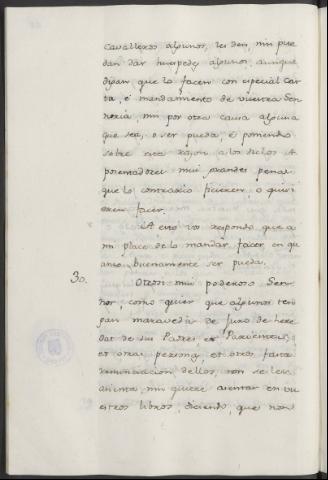 cavalleros algunos, les den, nin pue
dan dar huespedes algunos, aunque
digan que lo facen con especial car
ta, é mandamiento de vuestra Sen
noria, nin por otra causa alguna
que sea, o ser pueda, é poniendo
sobre esta razon a los dichos A
posentadores mui grandes penas
que lo contrario ficieren, o quisi
eren facer.
A esto vos respondo que a
mi place de lo mandar facer en qu
anto buenamente ser pueda.
30. Otrosi mui poderoso Sen
nor, como quier que algunos ten
gan maravedis de juro de here
dat de sus Padres, et Parientes,
et otras personas, et otros fasta
renunciacion dellos, non se les
asienta, nin quiere asentar en vu
estros libros, diciendo, que non